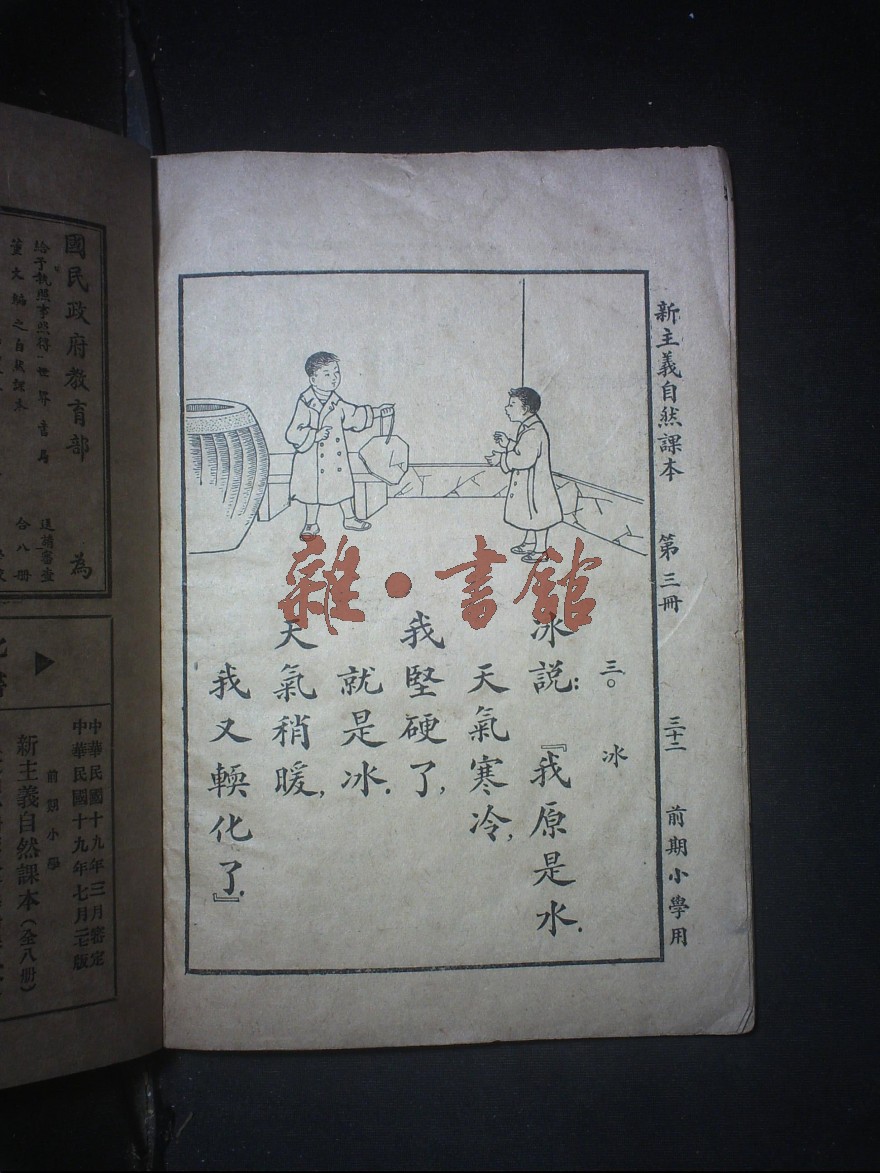 新主義自然課本 第三冊 三十二 前期小學用
三〇 冰
冰說：『我原是水．
天氣寒冷，
我堅硬了，
就是冰．
天氣稍暖，
我又輭化了．』
雜·書館
國民政府教育部 為
給予執照事照得世界書局 送請審查
董文編之自然課本 合八冊
中華民國十九年三月審定
中華民國十九年七月二七版
前期小學
新主義自然課本（全八冊）